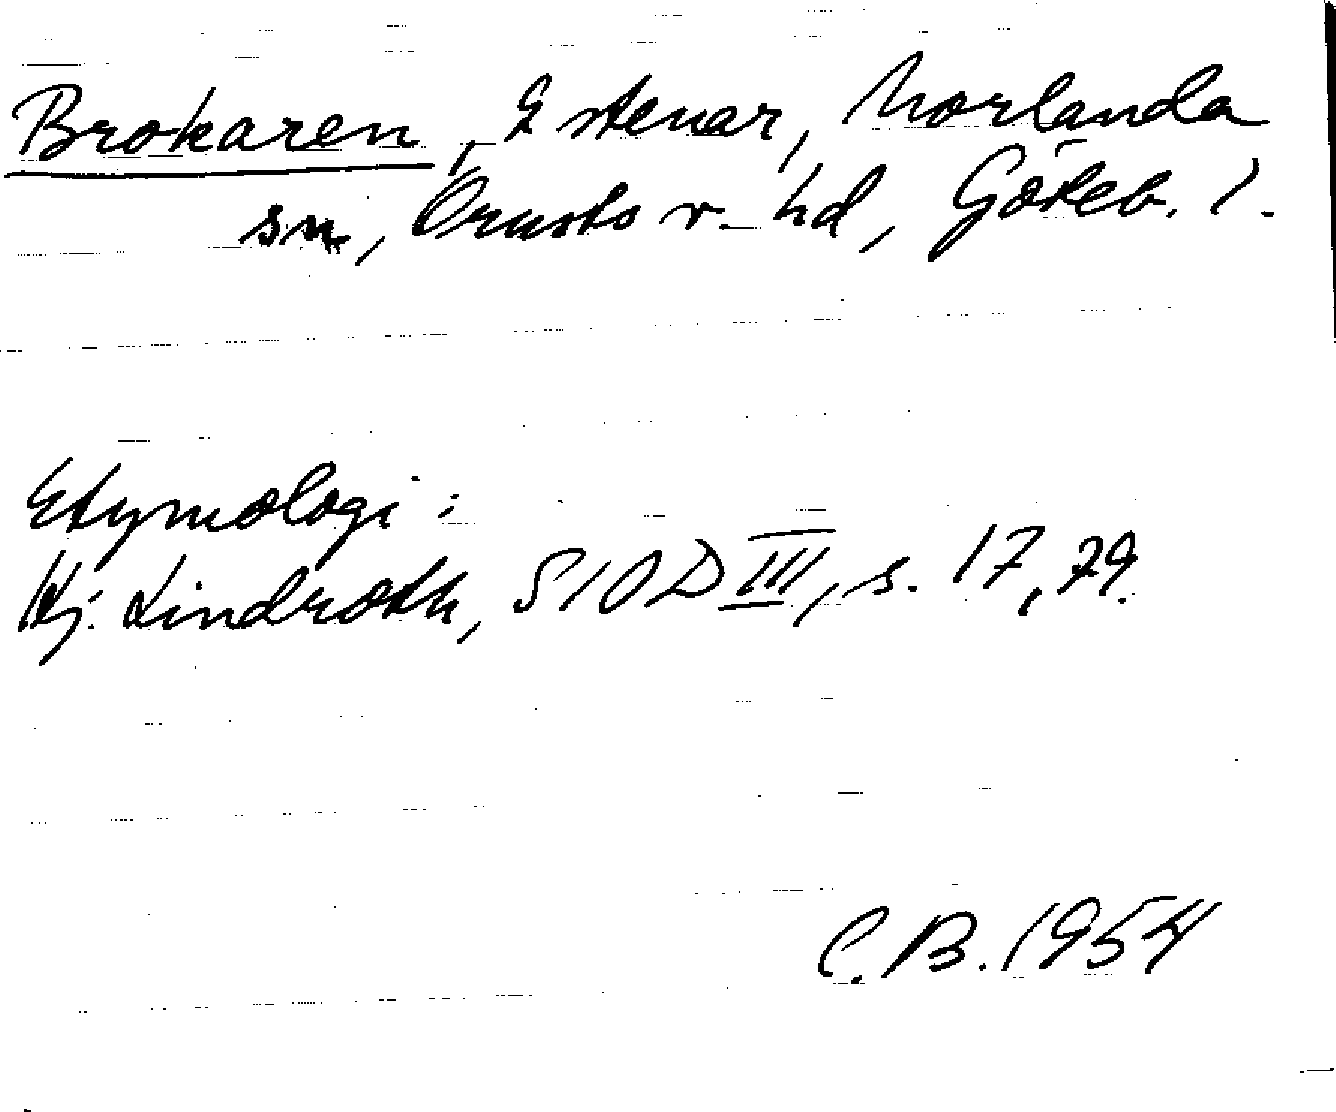 Brokaren, 2 stenar, Morlanda
sn, Orusts v. hd, Göteb. l.
Etymologi:
Hj. Lindroth, SIOD III, s. 17, 79.
C.B. 1954